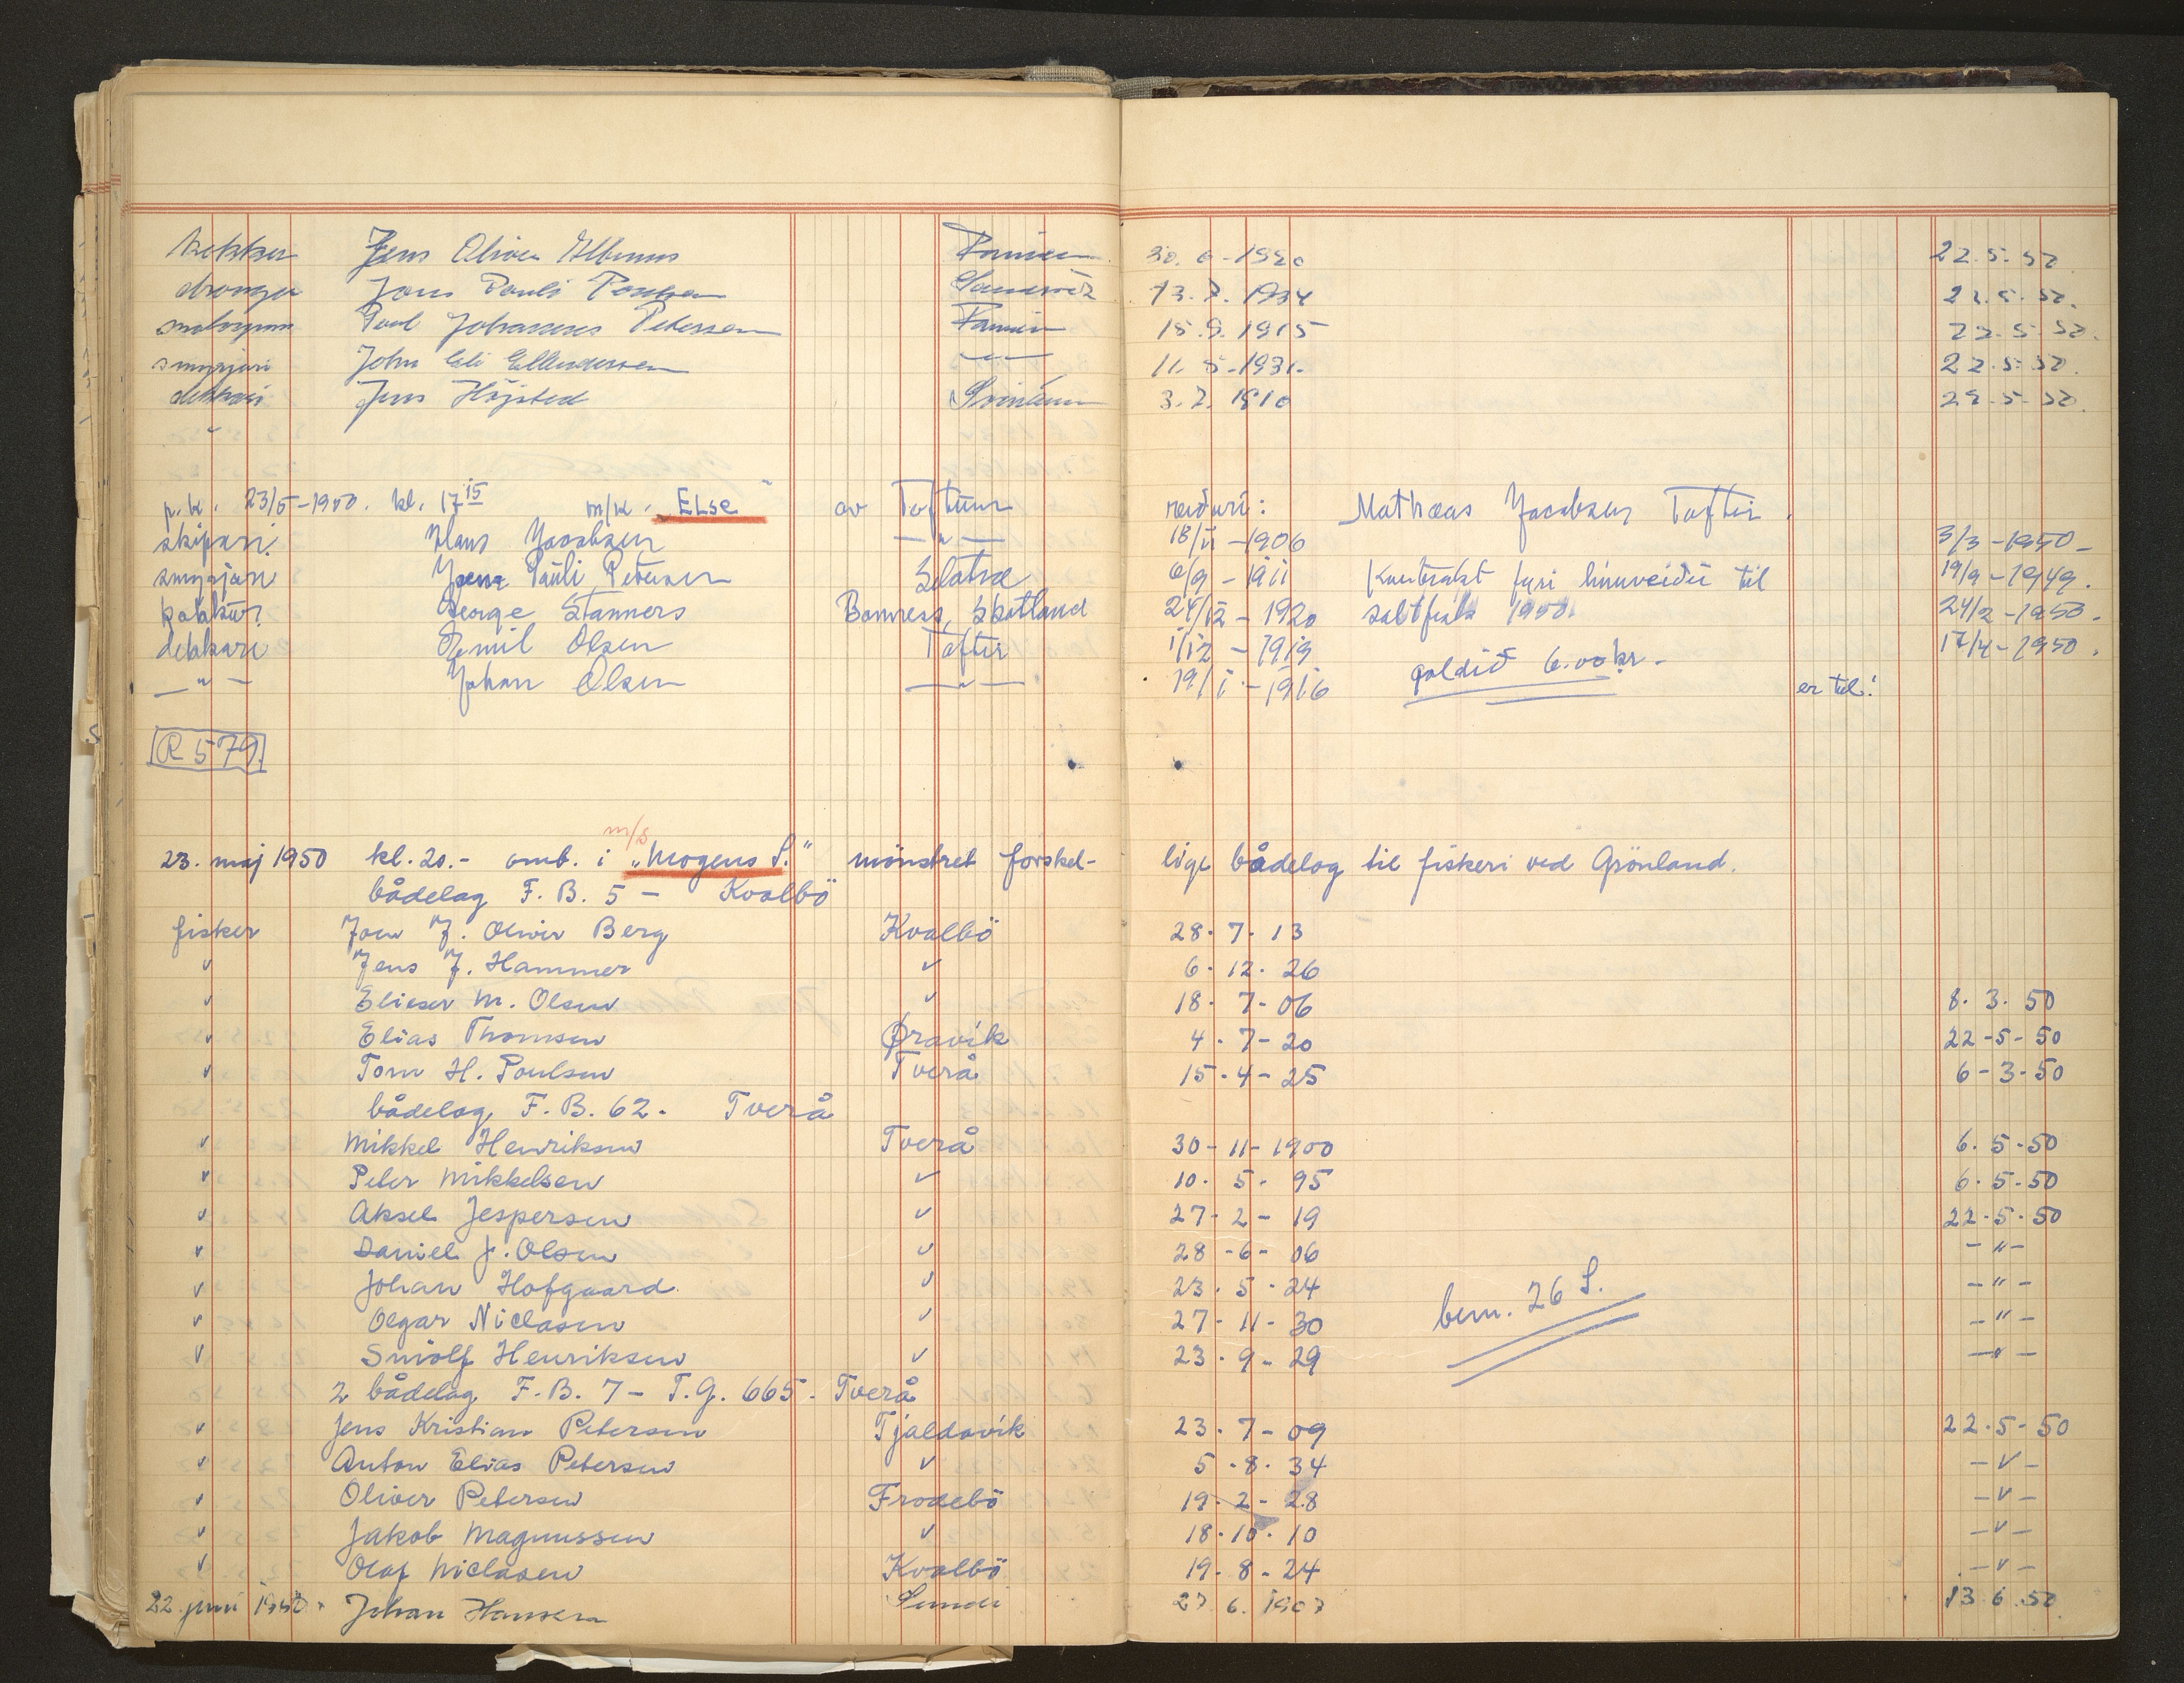 kokkur Jens Oliver 30. 6 - 1920 22.5.50
drongur Jens Pauli Poulsen Sandvík 13.7.1934 22.5.50.
Poul Johannes Pedersen 15.9.1915 22.5.50.
smyrjari John Eli Ellendersen —"— 11.5-1931. 22.5.50.
dekkari Jens Højsted 3.7.1910 22.5.50.
p.k. 23/5-1950. kl. 17 15 m/k. „ELSe" av Toftum reiðari: Mathæas Jacobsen, Toftir.
skipari. Hans Jacobsen —"— 18/11-1906 3/3-1950-
smyrjari Jens Pauli Petersen Selatrað 6/9-1911 Kontrakt fyri línuveiði til 19/9-1949.
kokkur. George Stanners Skotland 24/12-1920 saltfisk 1950. 24/2-1950.
dekkari Emil Olsen Toftir 1/12-1919 goldið 6.00 kr.- 17/4-1950.
—"— Johan Olsen —"— 19/1-1916 er til!
R 579
m/s
23. maj 1950 kl. 20.- omb. i „Mogens S." mönstret forskel- lige bådelog til fiskeri ved Grönland.
bådelag F.B. 5 - Kvalbö
fisker Jon J. Oliver Berg Kvalbö 28-7-13
" Jens J. Hammer " 6-12-26
" Elieser M. Olsen " 18-7-06 8.3.50
" Elias Thomsen Øravík 4-7-20 22-5-50
" Tom H. Poulsen Tverå 15-4-25 6-3-50
bådelag F.B. 62. Tverå
" Mikkel Henriksen Tverå 30-11-1900 6.5-50
" Peter Mikkelsen " 10-5-95 6-5-50
" Aksel Jespersen " 27-2-19 22-5-50
" Daniel J. Olsen " 28-6-06 -"-
" Johan Hofgaard " 23-5-24 -"-
" Olgar Niclasen " 27-11-30 bem. 26 S. -"-
" Sniolf Henriksen " 23-9-29 -"-
2 bådelag F.B. 7 - T.G. 665. Tverå
" Jens Kristian Petersen Tjaldavík 23-7-09 22-5-50
" Anton Elias Petersen " 5-8-34 -"-
" Oliver Petersen Frodebö 19-2-28 -"-
" Jakob Magnussen " 18-10-10 -"-
" Olaf Niclasen Kvalbö 19-8-24 -"-
22 juni 1950. Johan Hansen Sundi 27.6.1907 13.6.50.